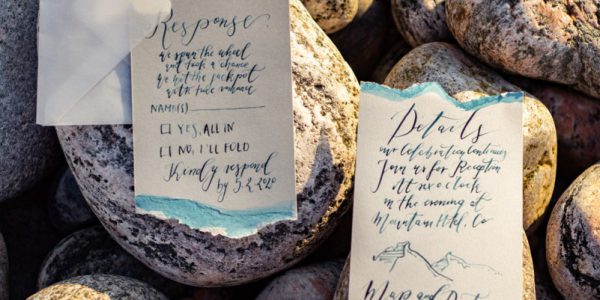 Response
We spun the wheel
and took a chance
We hit the jackpot
with true romance
NAME(S)
YES, ALL IN
NO, I'LL FOLD
Kindly respond
by 5.2.2020
Details
our Celebration Continues
Join us for Reception
At six o'clock
in the evening at
Mountain Hotel, Co
Map and